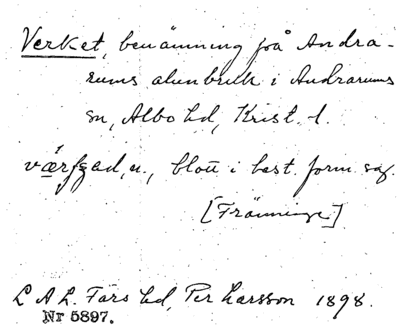 Verket, benämning på Andra-
rums alunbruk i Andrarums
sn, Albo hd, Krist. l.
blott i best. form sg.
[Tränninge]
L A L. Färs hd, Per Larsson 1898.
Nr 5897.